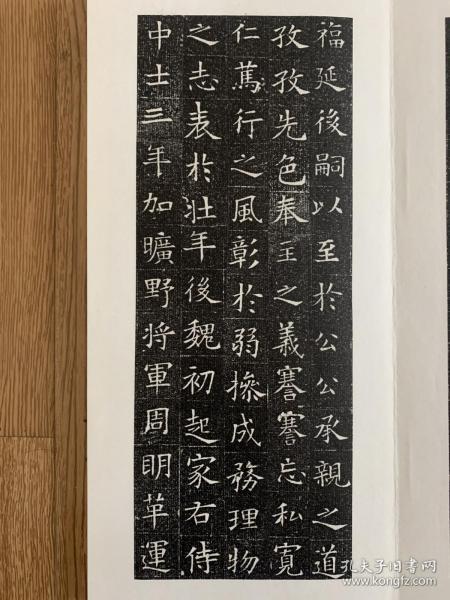 福延後嗣以至於公公承親之道
孜孜先色奉主之義謇謇忘私寬
仁蔿行之風彰於弱摻成務理物
之志表於壮年後魏初起家右侍
中士三年加曠野将軍周明革運
孔夫子旧书网
www.kongfz.com